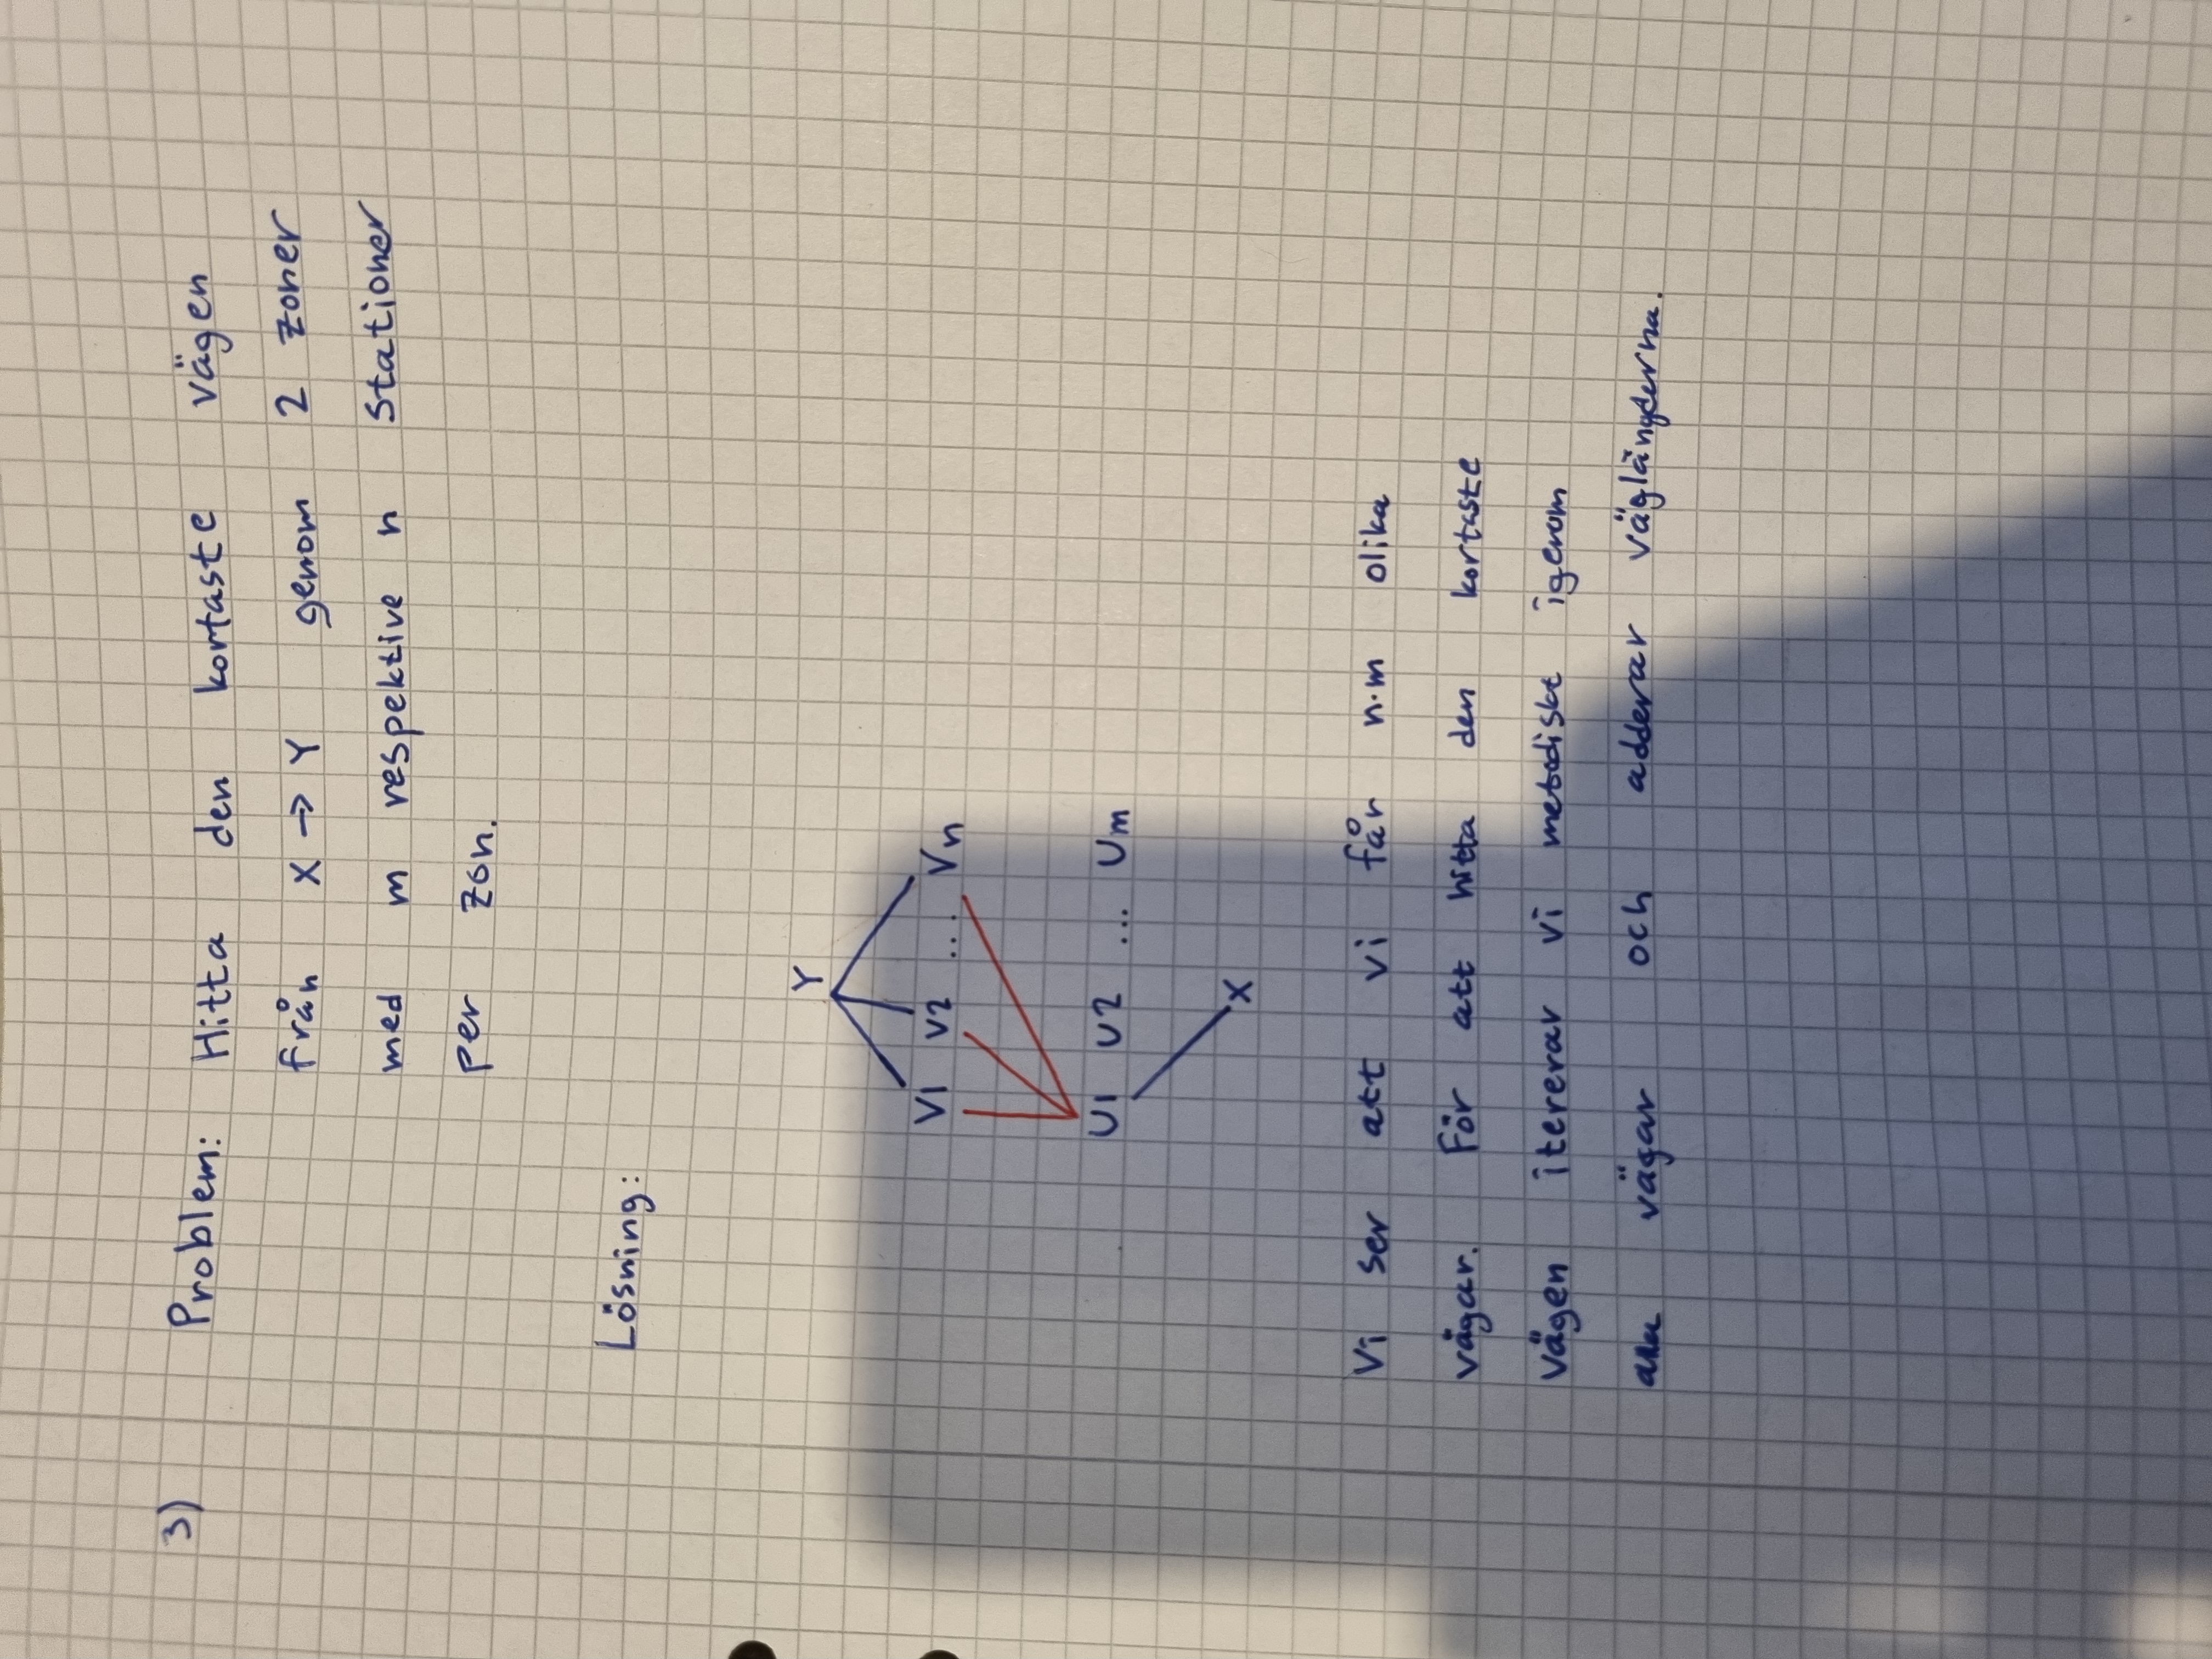 3) Problem: Hitta den kortaste vägen
från X → Y genom 2 zoner
med m respektive n stationer
per zon.
Lösning:
Y
V1 V2 ... Vn
U1 U2 ... Um
X
Vi ser att vi får n·m olika
vägar. För att hitta den kortaste
vägen itererar vi metodiskt igenom
alla vägar och adderar väglängderna.